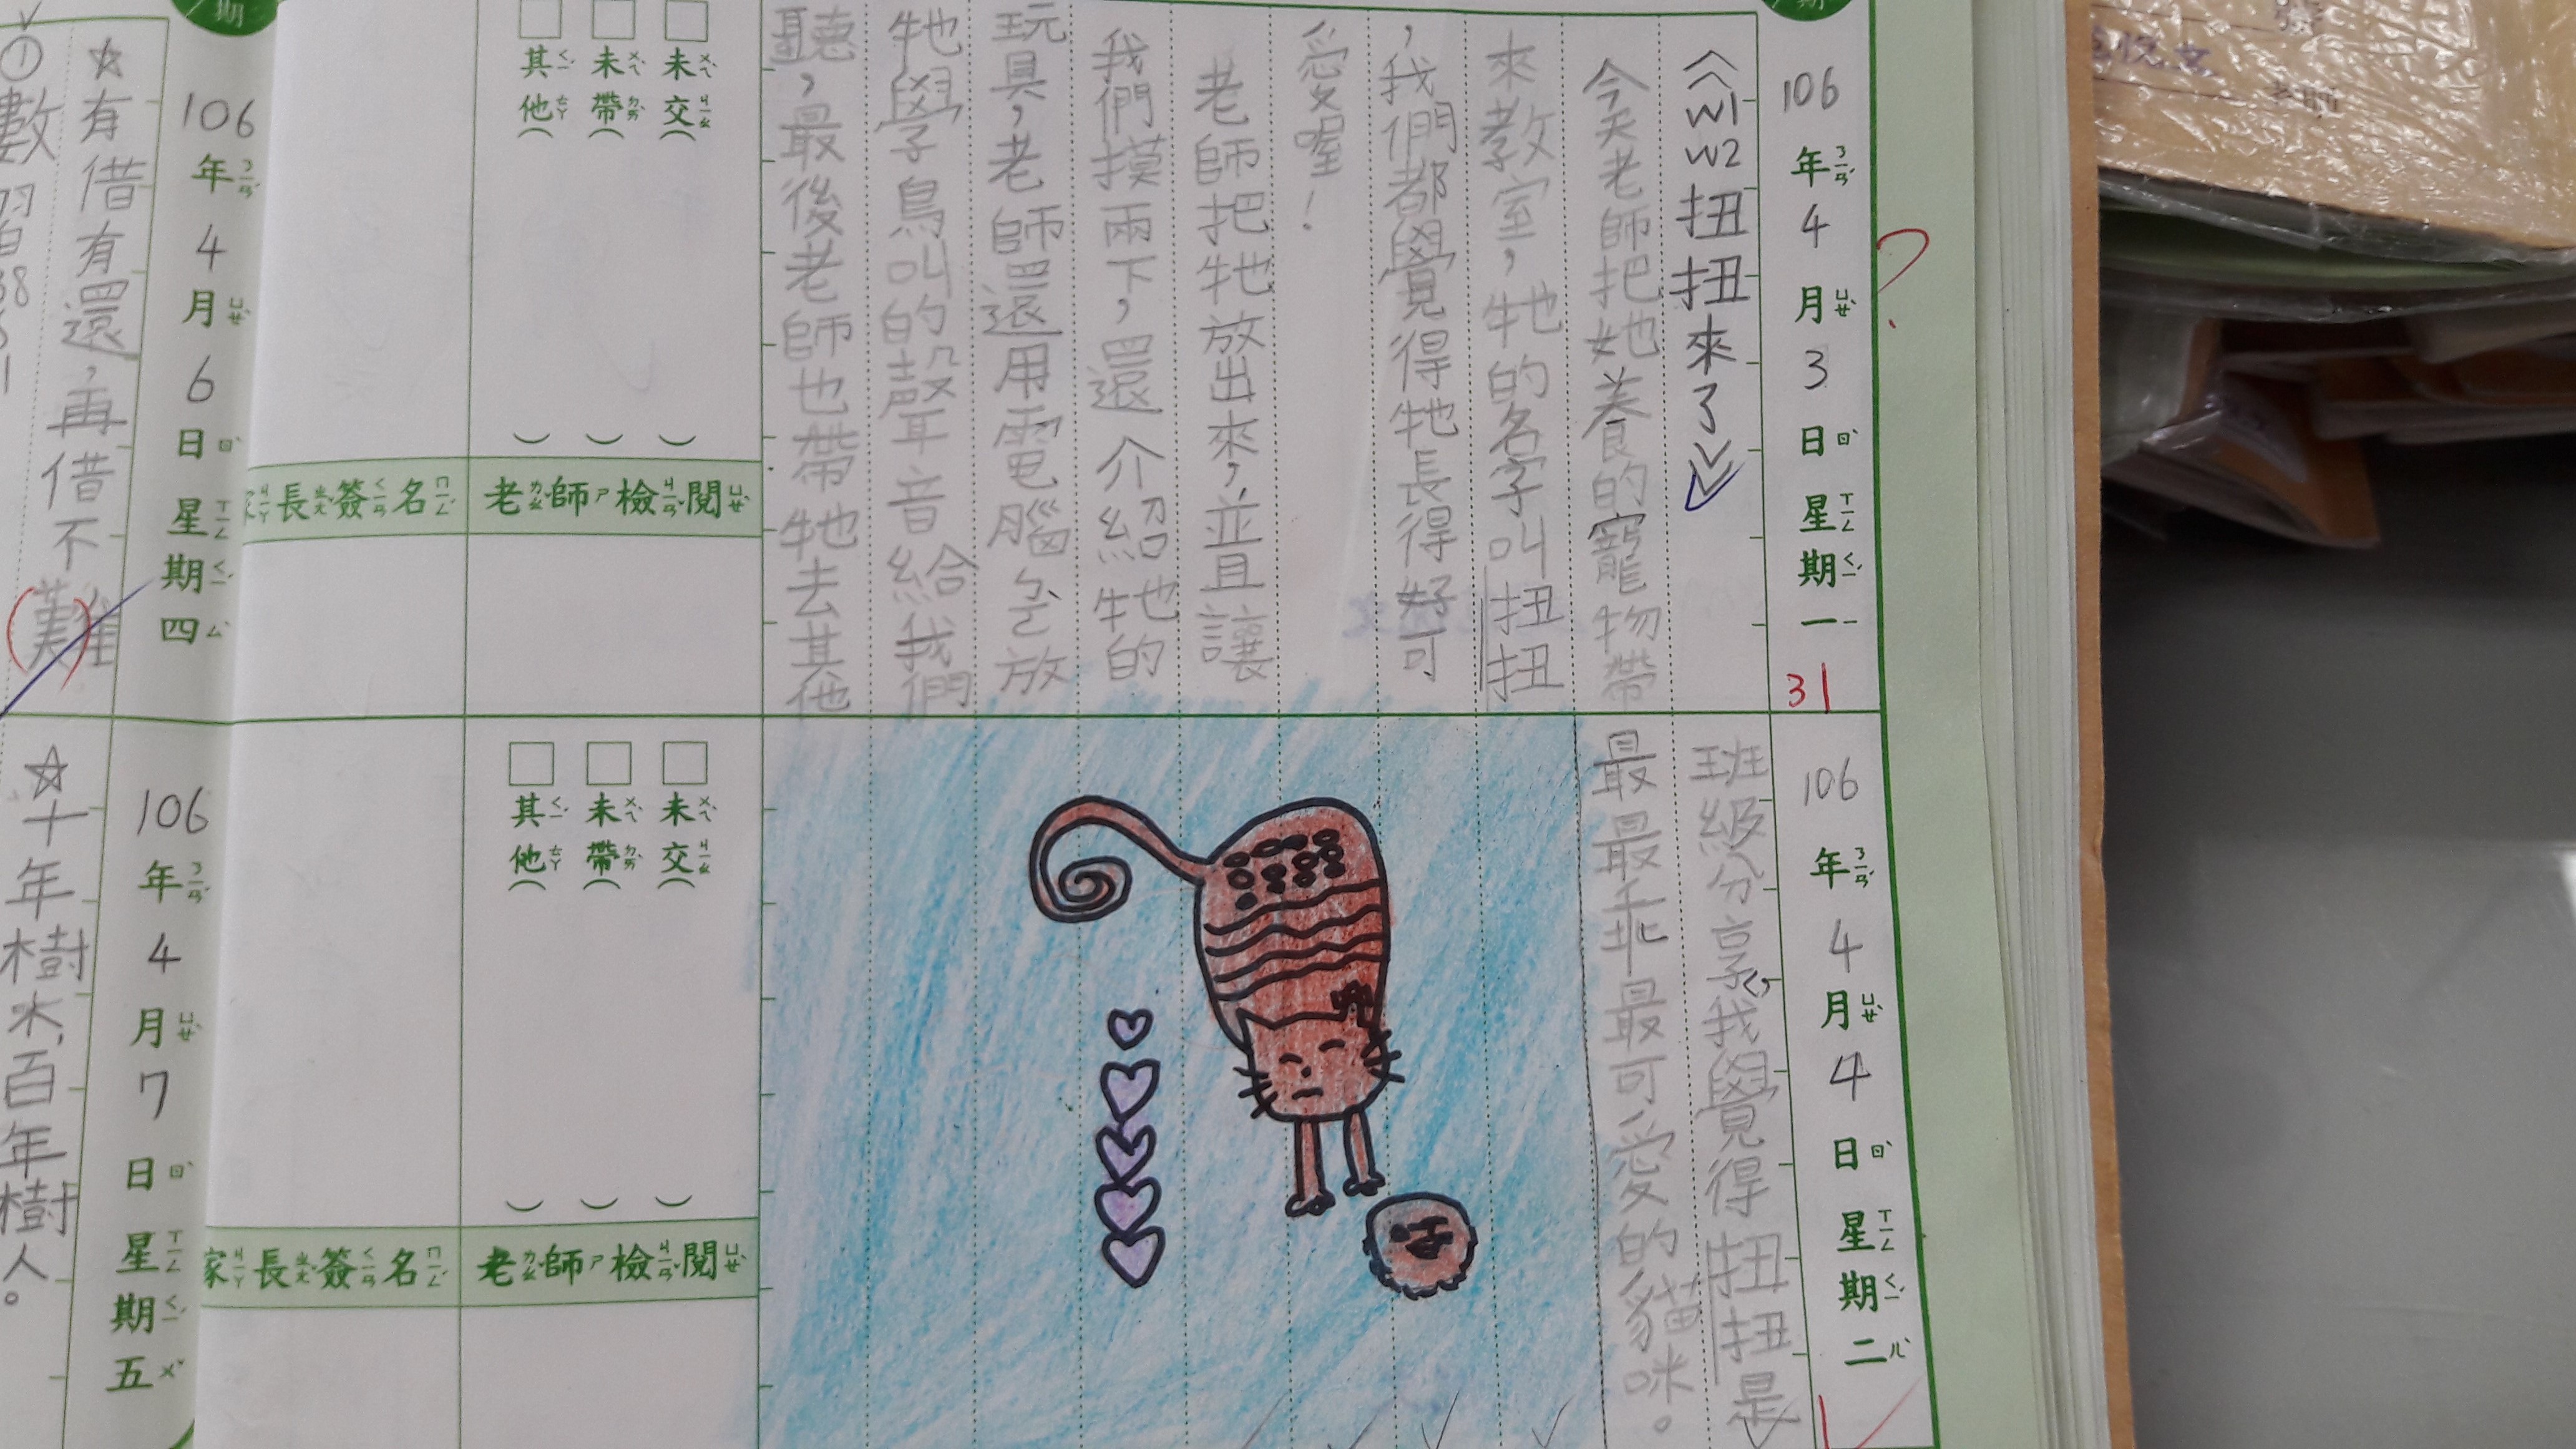 106年4月3日星期一
31
?
《W1W2扭扭來了》
今天老師把她養的寵物帶
來教室,牠的名字叫扭扭
,我們都覺得牠長得好可
愛喔!
老師把牠放出來,並且讓
我們摸兩下,還介紹牠的
玩具,老師還用電腦放
牠學鳥叫的聲音給我們
聽,最後老師也帶牠去其他
未交( )
未帶( )
其他( )
老師檢閱
家長簽名
106年4月4日星期二
班級分享,我覺得扭扭是
最最乖最可愛的貓咪。
未交( )
未帶( )
其他( )
老師檢閱
家長簽名
106年4月6日星期四
☆有借有還,再借不難
①數習
106年4月7日星期五
☆十年樹木,百年樹人。